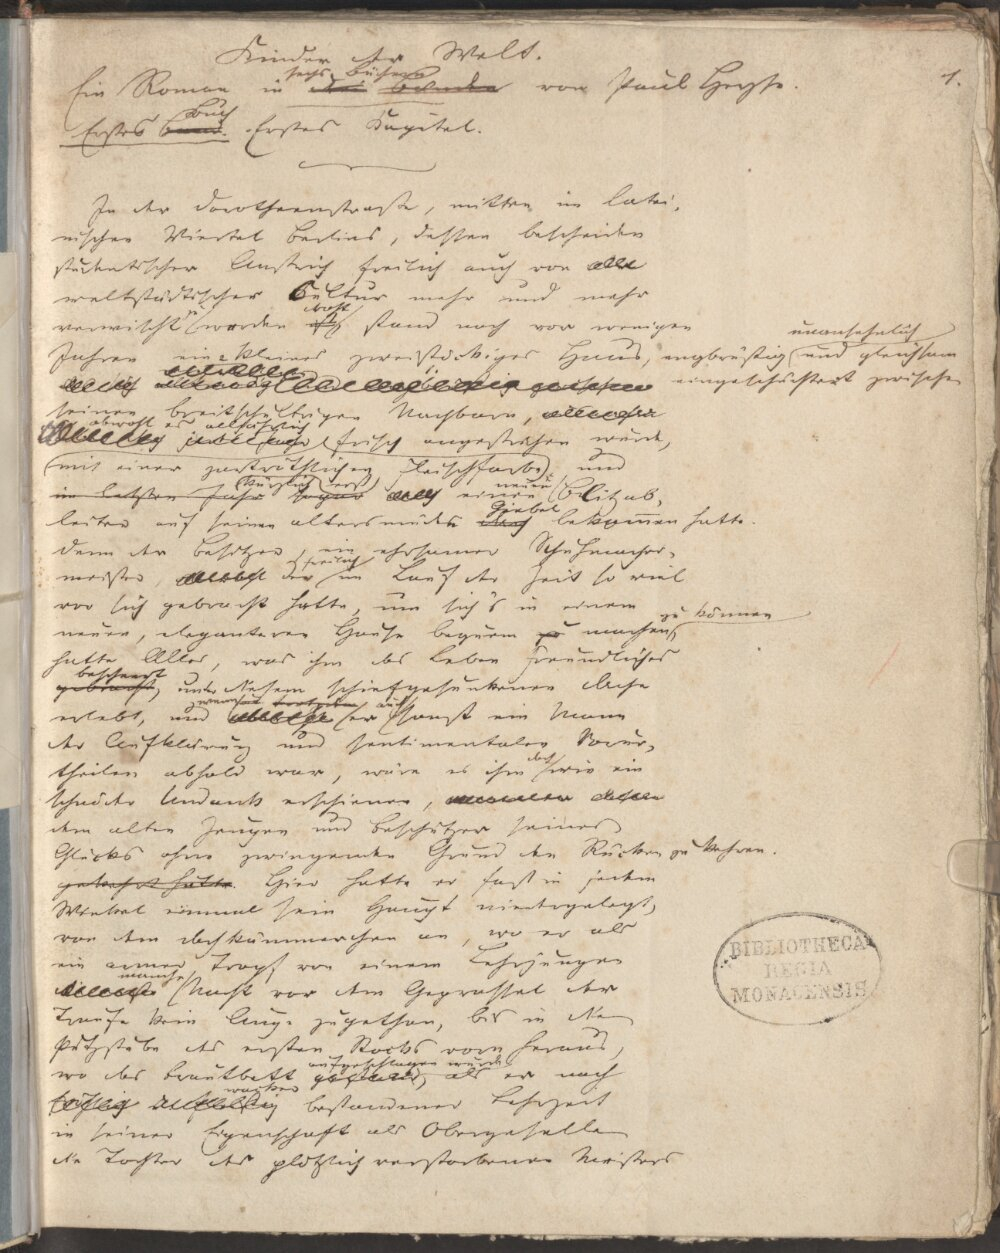 Kinder der Welt.
1.
Ein Roman in sechs Büchern von Paul Heyse.
Erstes Buch. Erstes Kapitel.
In der Dorotheenstraße, mitten im latei-
nischen Viertel Berlins, dessen bescheiden
studentischer Anstrich freilich auch von der
weltstädtischen Cultur mehr und mehr
verwischt zu werden droht, stand noch vor wenigen
Jahren ein kleines zweistöckiges Haus, engbrüstig, unansehnlich und gleichsam
eingeschüchtert zwischen
seinen breitschultrigen Nachbarn,
obwohl es alljährlich frisch angestrichen wurde,
mit einer zartröthlichen Fleischfarbe, und
kürzlich erst einen neuen Blitzab-
leiter auf seinen altersmüden Giebel bekommen hatte.
Denn der Besitzer, ein ehrsamer Schuhmacher-
meister, der freilich im Lauf der Zeit so viel
vor sich gebracht hatte, um sich's in einem
neuen, eleganteren Hause bequem machen zu können,
hatte Alles, was ihm das Leben Freundliches
bescheert, unter diesem schiefgesunkenen Dache
erlebt, und er sonst ein Mann
der Aufklärung und sentimentalen Vorur-
theilen abhold war, wäre es ihm doch wie ein
schnöder Undank erschienen,
dem alten Zeugen und Beschützer seines
Glücks ohne zwingenden Grund den Rücken zu kehren.
Hier hatte er fast in jedem
Winkel einmal sein Haupt niedergelegt,
von dem Dachkämmerchen an, wo er als
ein armer Tropf von einem Lehrjungen
manche Nacht vor dem Geprassel der
Traufe kein Auge zugethan, bis in die
Putzstube des ersten Stocks vorn heraus,
wo das Brautbett aufgeschlagen wurde, als er nach
wacker bestandener Lehrzeit
in seiner Eigenschaft als Obergeselle
die Tochter des plötzlich verstorbenen Meisters
BIBLIOTHECA
REGIA
MONACENSIS